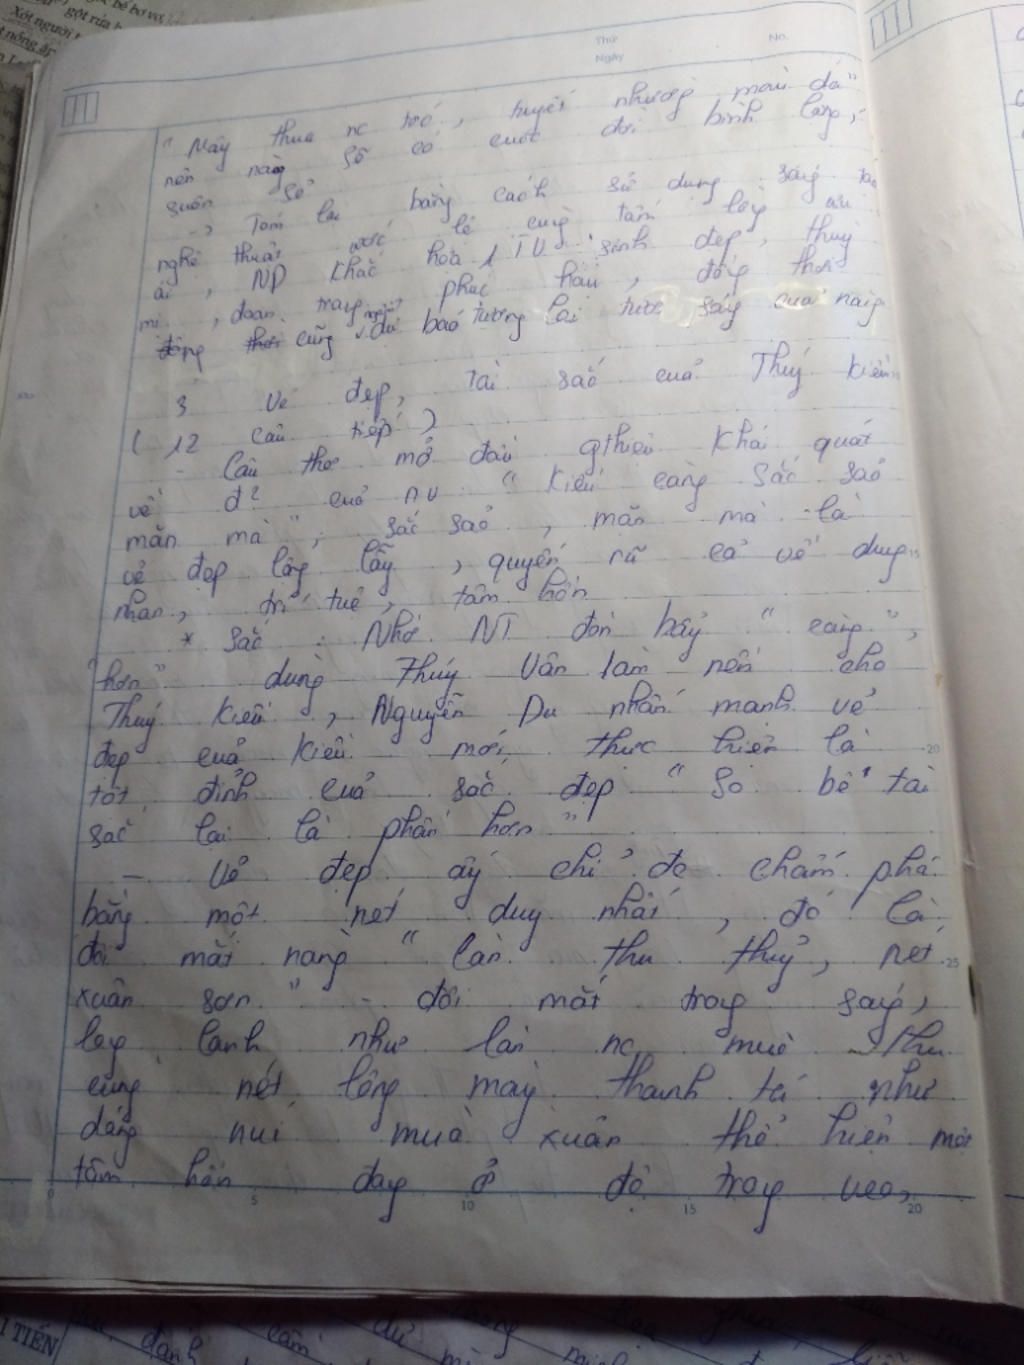 Xót người t
gột rửa
bé bơ vơ,
nồng ấ
Thứ
Ngày
No.
"Mây thua nc tóc, tuyết nhường màu da"
nên nàng sẽ có cuộc đời bình lặng,
suôn sẻ
-> Tóm lại bằng cách sử dụng sáng tạo
nghệ thuật ước lệ cùng tấm lòng ưu
ái, ND khắc họa TV xinh đẹp, thuỳ
mị, đoan trang, phúc hậu, đồng thời
cũng dự báo tương lai tươi sáng của nàng
3 Vẻ đẹp, tài sắc của Thuý Kiều
(12 câu tiếp)
- Câu thơ mở đầu gthiệu khái quát
về đ² của nv "Kiều càng sắc sảo
mặn mà", sắc sảo, mặn mà là
vẻ đẹp lộng lẫy, quyến rũ cả về dung
nhan, trí tuệ, tâm hồn
* Sắc: Nhờ NT đòn bẩy "càng",
"hơn" dùng Thuý Vân làm nền cho
Thuý Kiều, Nguyễn Du nhấn mạnh vẻ
đẹp của Kiều mới thực hiện là
tột đỉnh của sắc đẹp "So bề tài
sắc lại là phần hơn"
- Vẻ đẹp ấy chỉ đc chấm phá
bằng một nét duy nhất, đó là
đôi mắt nàng "làn thu thuỷ, nét
xuân sơn" - đôi mắt trong sáng,
long lanh như làn nc mùa thu
cùng nét lông mày thanh tú như
dáng núi mùa xuân thể hiện một
tâm hồn đang ở độ trong veo,
0 5 10 15 20
I TIẾN